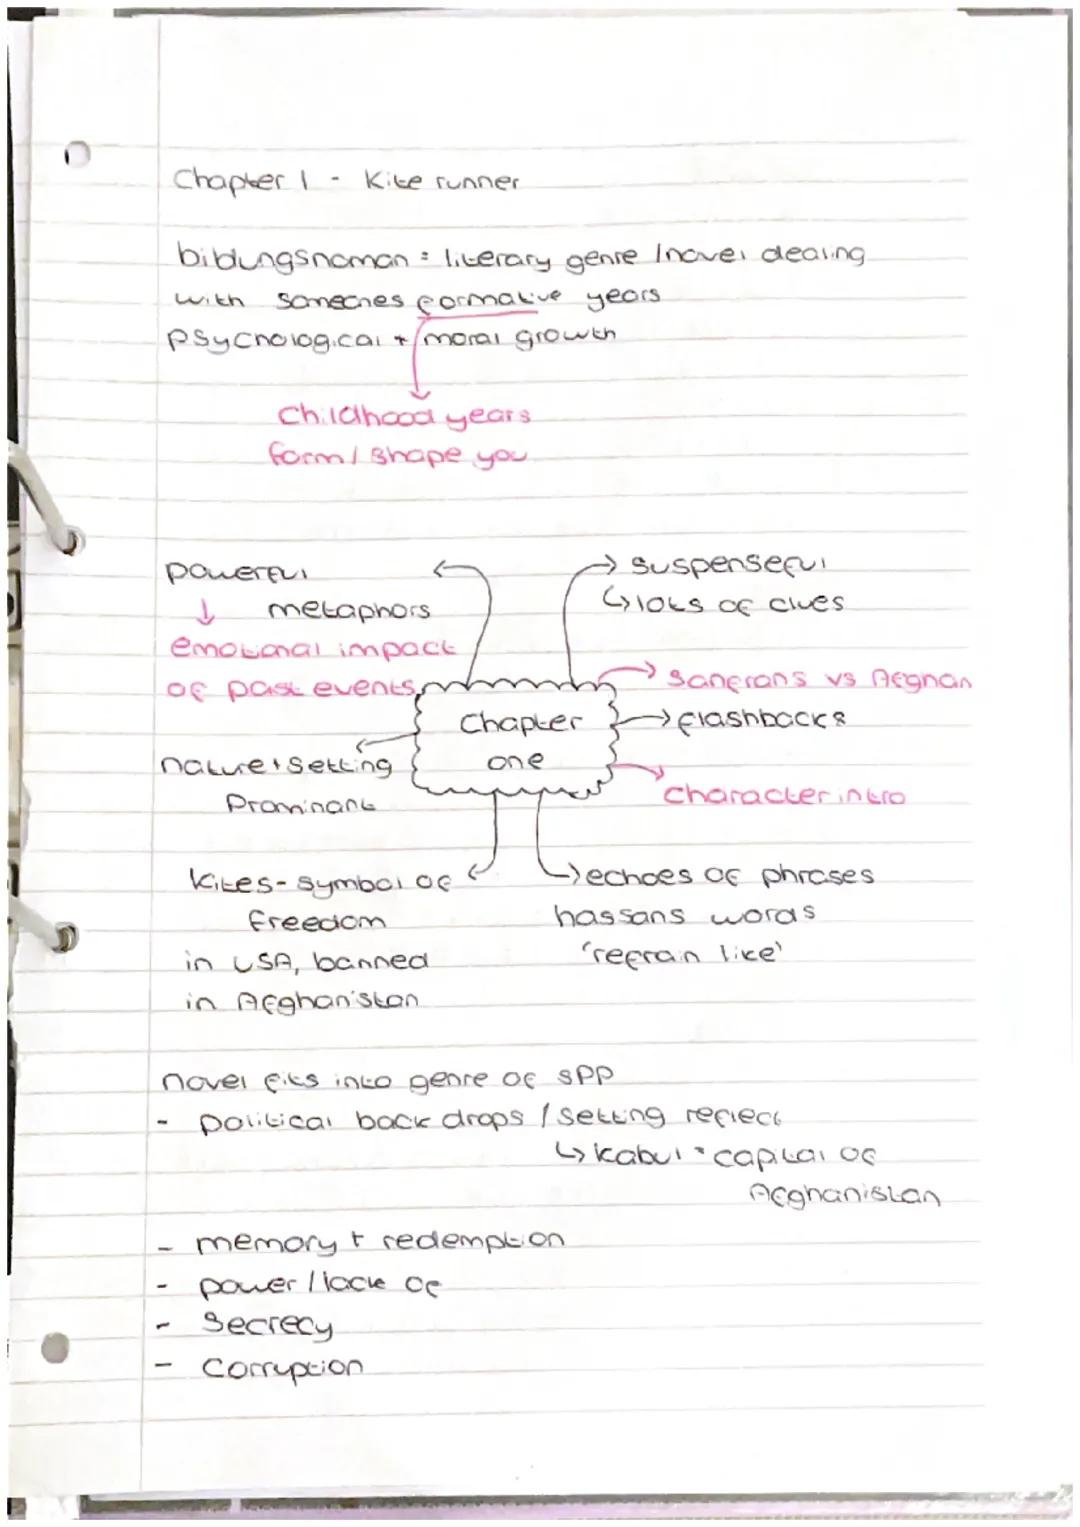 Chapter 1 - Kite runner
bildungsnoman = literary genre / novel dealing
with someones formative years
psychological + moral growth
Childhood years
form / shape you
powerful
metaphors
↓
emotional impact
of past events
→ suspenseful
↳ lots of clues
→ Sanfrans vs Afghan
→ flashbacks
character intro
Chapter
one
nature + setting
Prominant
kites - symbol of
freedom
in USA, banned
in Afghanistan
→ echoes of phrases
hassans words
'refrain like'
novel fits into genre of SPP
- political back drops / setting reflect
↳ kabul = capital of
Afghanistan
- memory + redemption
- power / lack of
- Secrecy
- Corruption